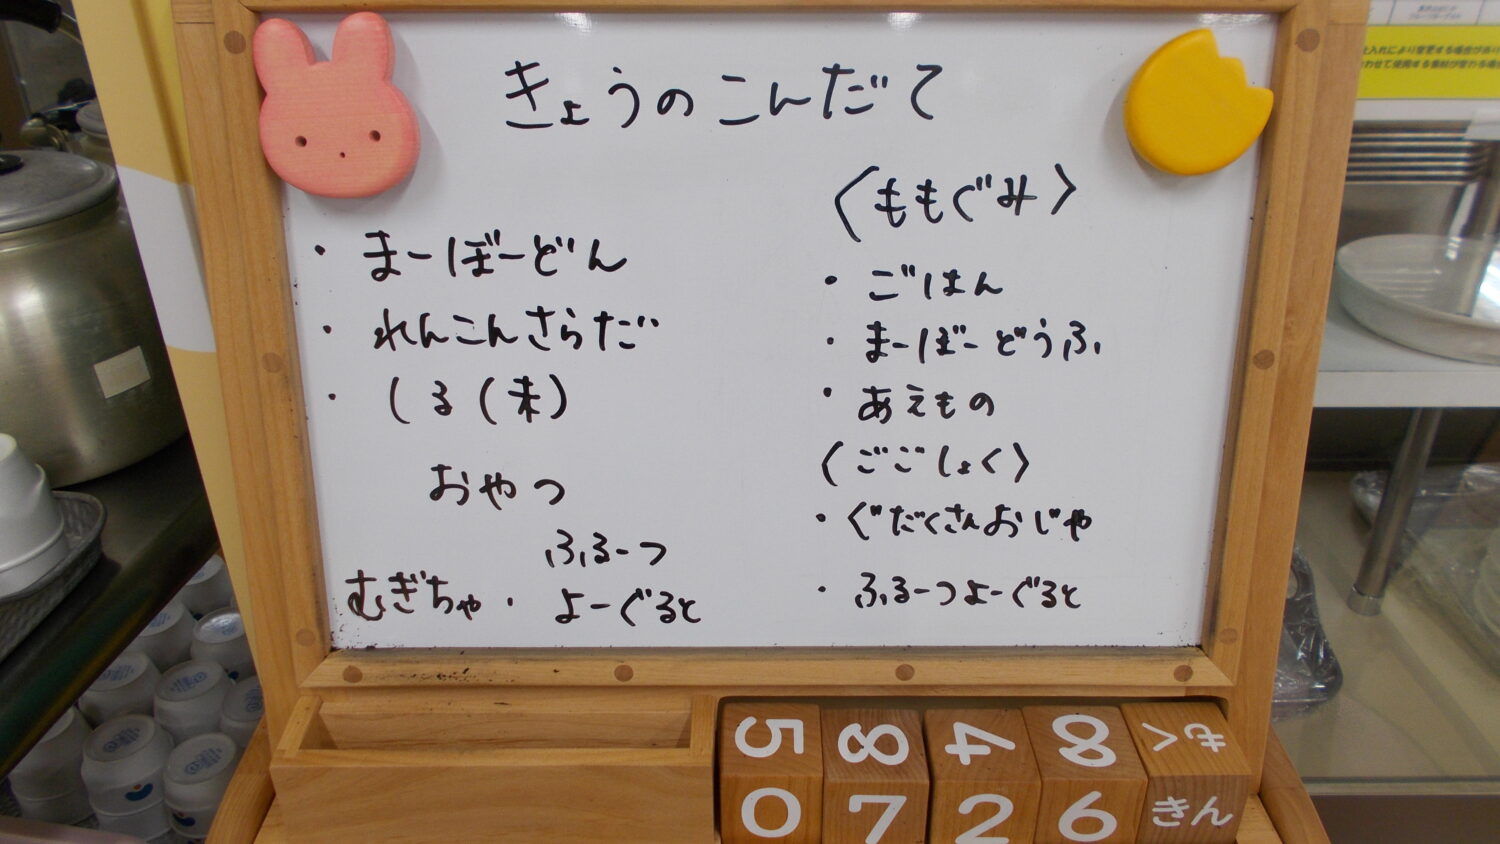 きょうのこんだて
・まーぼーどん
・れんこんさらだ
・しる(末)
おやつ
ふるーつ
むぎちゃ・よーぐると
〈ももぐみ〉
・ごはん
・まーぼーどうふ
・あえもの
〈ごごしょく〉
・ぐだくさんおじや
・ふるーつよーぐると
5 8 4 8 もく
0 7 2 6 きん